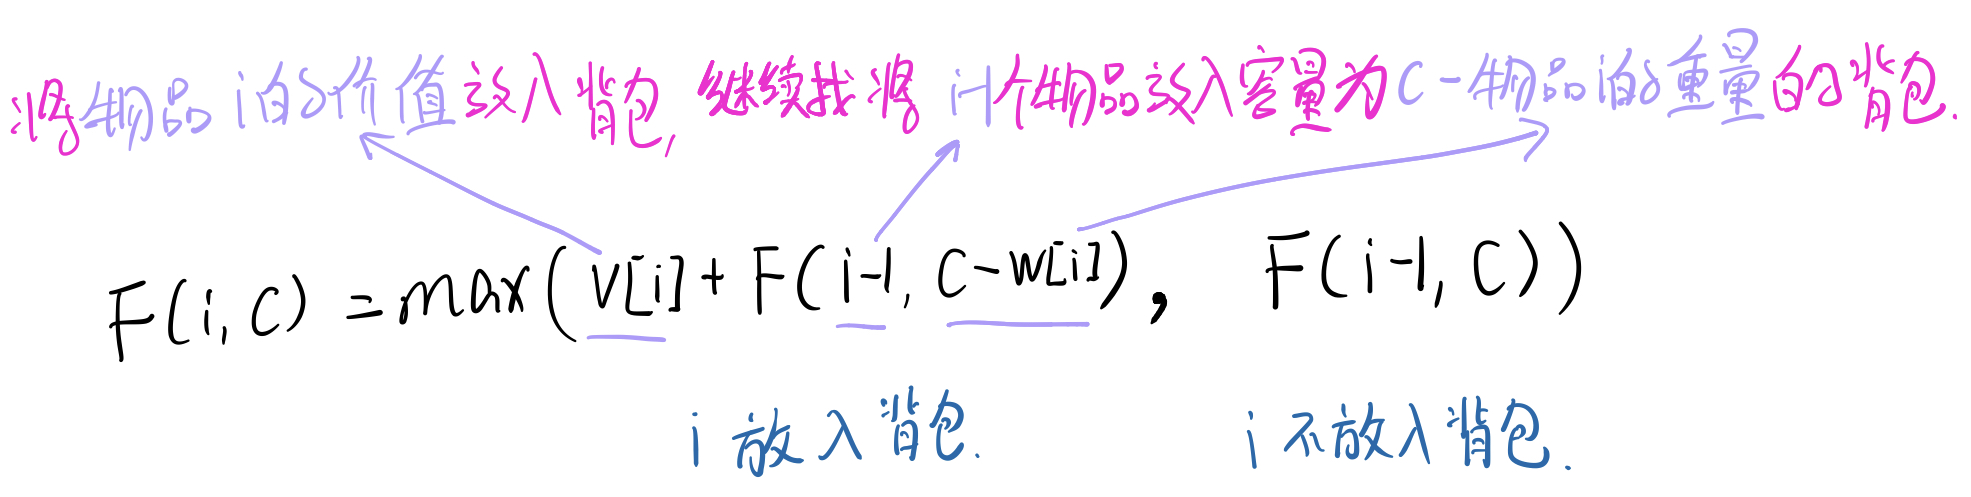 将物品i的价值放入背包,继续找将i-1个物品放入容量为C-物品i的重量的背包.
F(i,C) = max(V[i]+F(i-1,C-W[i]), F(i-1,C))
i放入背包. i不放入背包.